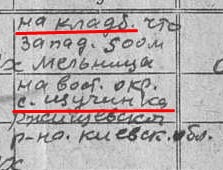 на кладб. что
запад. 500м
х мельница
на вост. окр.
с. Щучинка
Ржищевског
р-на. киевск. обл.
х